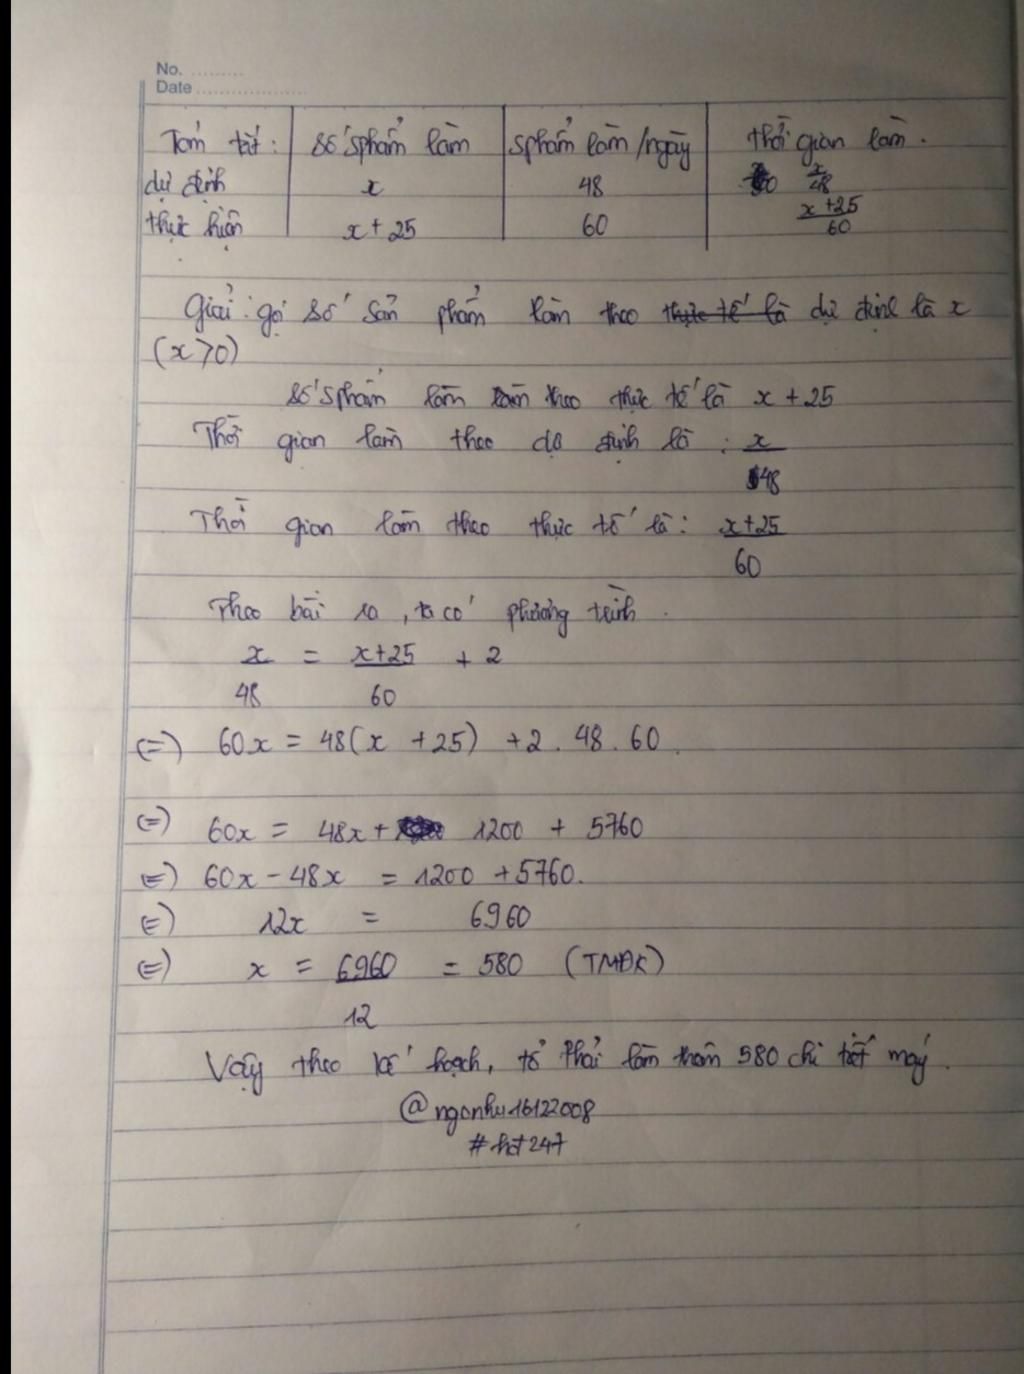 No. .........
Date ...................
Tóm tắt: số sphẩm làm sphẩm làm/ngày thời gian làm.
dự định x 48 x/48
thực hiện x + 25 60 x+25/60
Giải: gọi số sản phẩm làm theo thực tế là dự định là x
(x>0)
số sphẩm làm theo thực tế là x + 25
Thời gian làm theo dự định là: x/48
Thời gian làm theo thực tế là: x+25/60
Theo bài ra, ta có phương trình.
x/48 = x+25/60 + 2
(=) 60x = 48(x + 25) + 2 . 48 . 60.
(=) 60x = 48x + 1200 + 5760
(=) 60x - 48x = 1200 + 5760.
(=) 12x = 6960
(=) x = 6960/12 = 580 (TMĐK)
Vậy theo kế hoạch, tổ phải làm 580 chi tiết máy.
@ngonhu16122008
#hot247